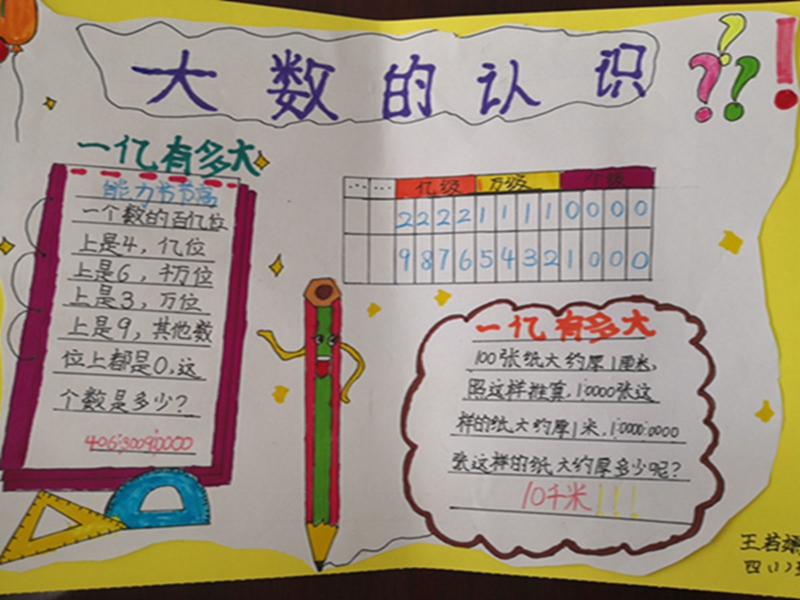 大数的认识
一亿有多大
能力节节高
一个数的百亿位
上是4，亿位
上是6，千万位
上是3，万位
上是9，其他数
位上都是0，这
个数是多少？
406¦3009¦0000
…… …… 亿级 万级 个级
2 2 2 2 1 1 1 1 0 0 0 0
9 8 7 6 5 4 3 2 1 0 0 0
一亿有多大
100张纸大约厚1厘米，
照这样推算，1¦0000张这
样的纸大约厚1米，1¦0000¦0000
张这样的纸大约厚多少呢？
10千米！！！
王若
四（1）